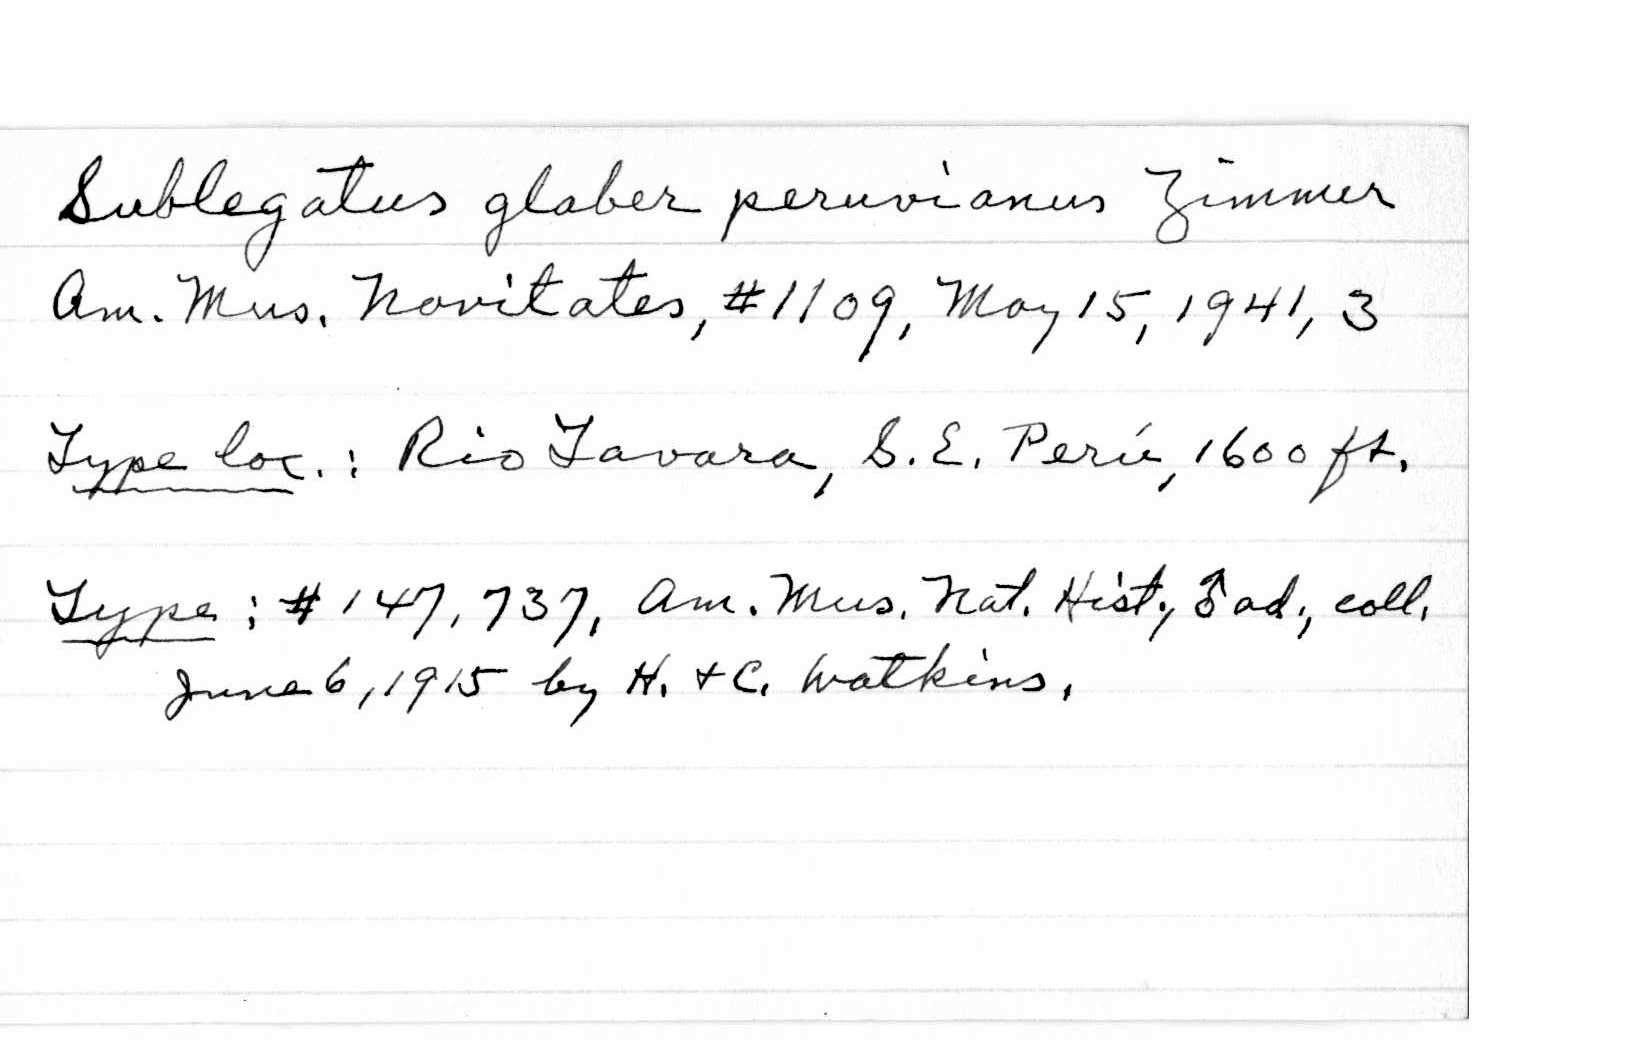 Sublegatus glaber peruvianus Zimmer
Am. Mus. Novitates, #1109, May 15, 1941, 3
Type loc.: Rio Tavara, S.E. Perú, 1600 ft.
Type: #147,737, Am. Mus. Nat. Hist., ♂ ad., coll.
June 6, 1915 by H. + C. Watkins.